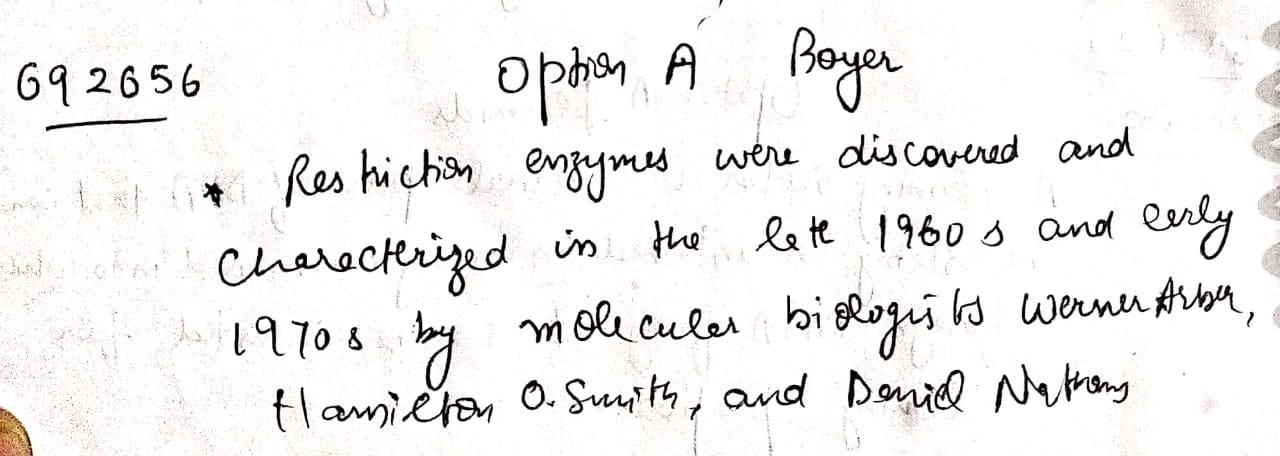 692656
Option A Boyer
* Restriction enzymes were discovered and
characterized in the late 1960s and early
1970s by molecular biologists Werner Arber,
Hamilton O. Smith, and Daniel Nathans